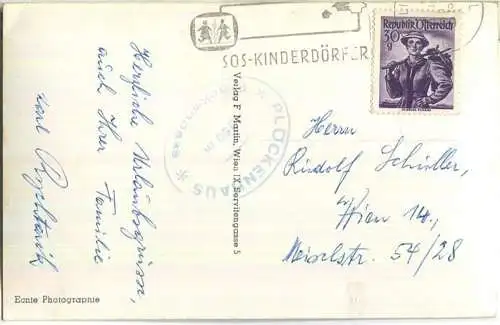 SOS-KINDERDÖRFER
Republik Österreich
30 g
Herzliche Urlaubsgrüsse,
auch Ihrer Familie
Karl
PLÖCKENHAUS
Verlag F. Martin, Wien IX. Servitengasse 5
Herrn
Rudolf Schüller,
Wien 14.,
Meiselstr. 54/28
Echte Photographie